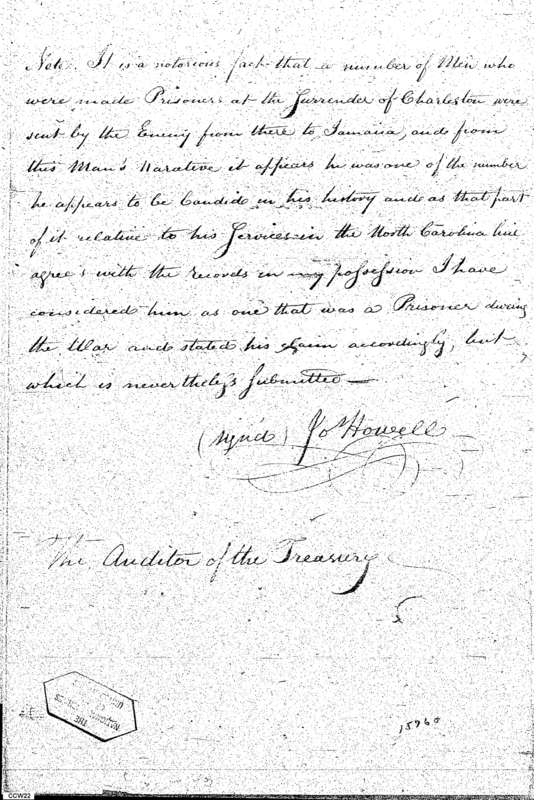 Note. It is a notorious fact that a number of Men who
were made Prisoners at the Surrender of Charleston were
sent by the Enemy from there to Jamaica, and from
this Man's Narative it appears he was one of the number
he appears to be Candid in his history and as that part
of it relative to his Services in the North Carolina line
agrees with the records in my possession I have
considered him as one that was a Prisoner during
the War and stated his claim accordingly, but
which is nevertheless Submitted —
(sign'd) Jos Howell
The Auditor of the Treasury
THE
NATIONAL ARCHIVES
OF
15960
CCW22